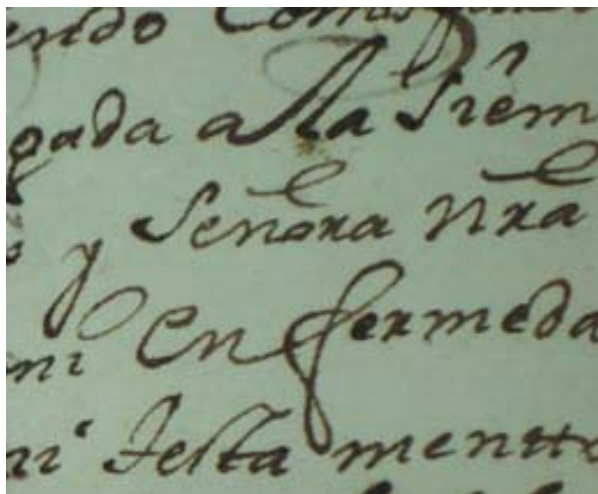 gada a la Siem
y Señora nra
mi enfermeda
mi testamento